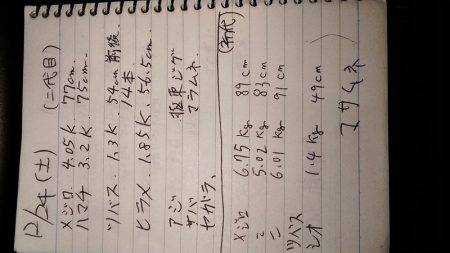 12/24 (土) (二代目)
メジロ 4.05K. 77cm.
ハマチ 3.2K. 75cm.
ツバス. 1.3K. 54cm前後
14本
ヒラメ. 1.85K. 56.5cm.
アジ
サバ
ヤガラ.
マラムネ
(初代)
メジロ 6.75Kg 89cm
〃 5.02Kg 83cm
〃 6.01Kg 91cm
ツバス
シオ 1.4Kg 49cm